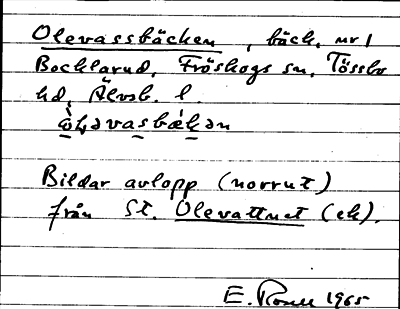 Olevassbäcken, bäck, nr 1
Bocklarud, Fröskogs sn, Tössbo
hd, Älvsb. l.
Bildar avlopp (norrut)
från St. Olevattnet (ek).
E. Rosell 1965